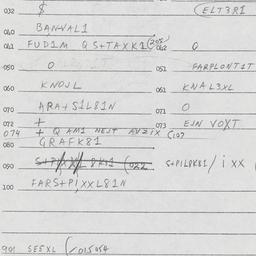 032 $ (ELT3R1
040 BANVAL1
041 FUD1M QS+TAXK1(305 042 O
050 O 051 FARPLONT1T
060 KNOJL 061 KNAL3XL
070 ARA+S1L81N 071 O
072 + 073 EJN VOXT
074 + Q AM1 NEJT AVZIX (107
080 GRAFK81
090 S+PILPK81/ixx
100 FARS+PIXXL81N
901 SE5XL (/015054